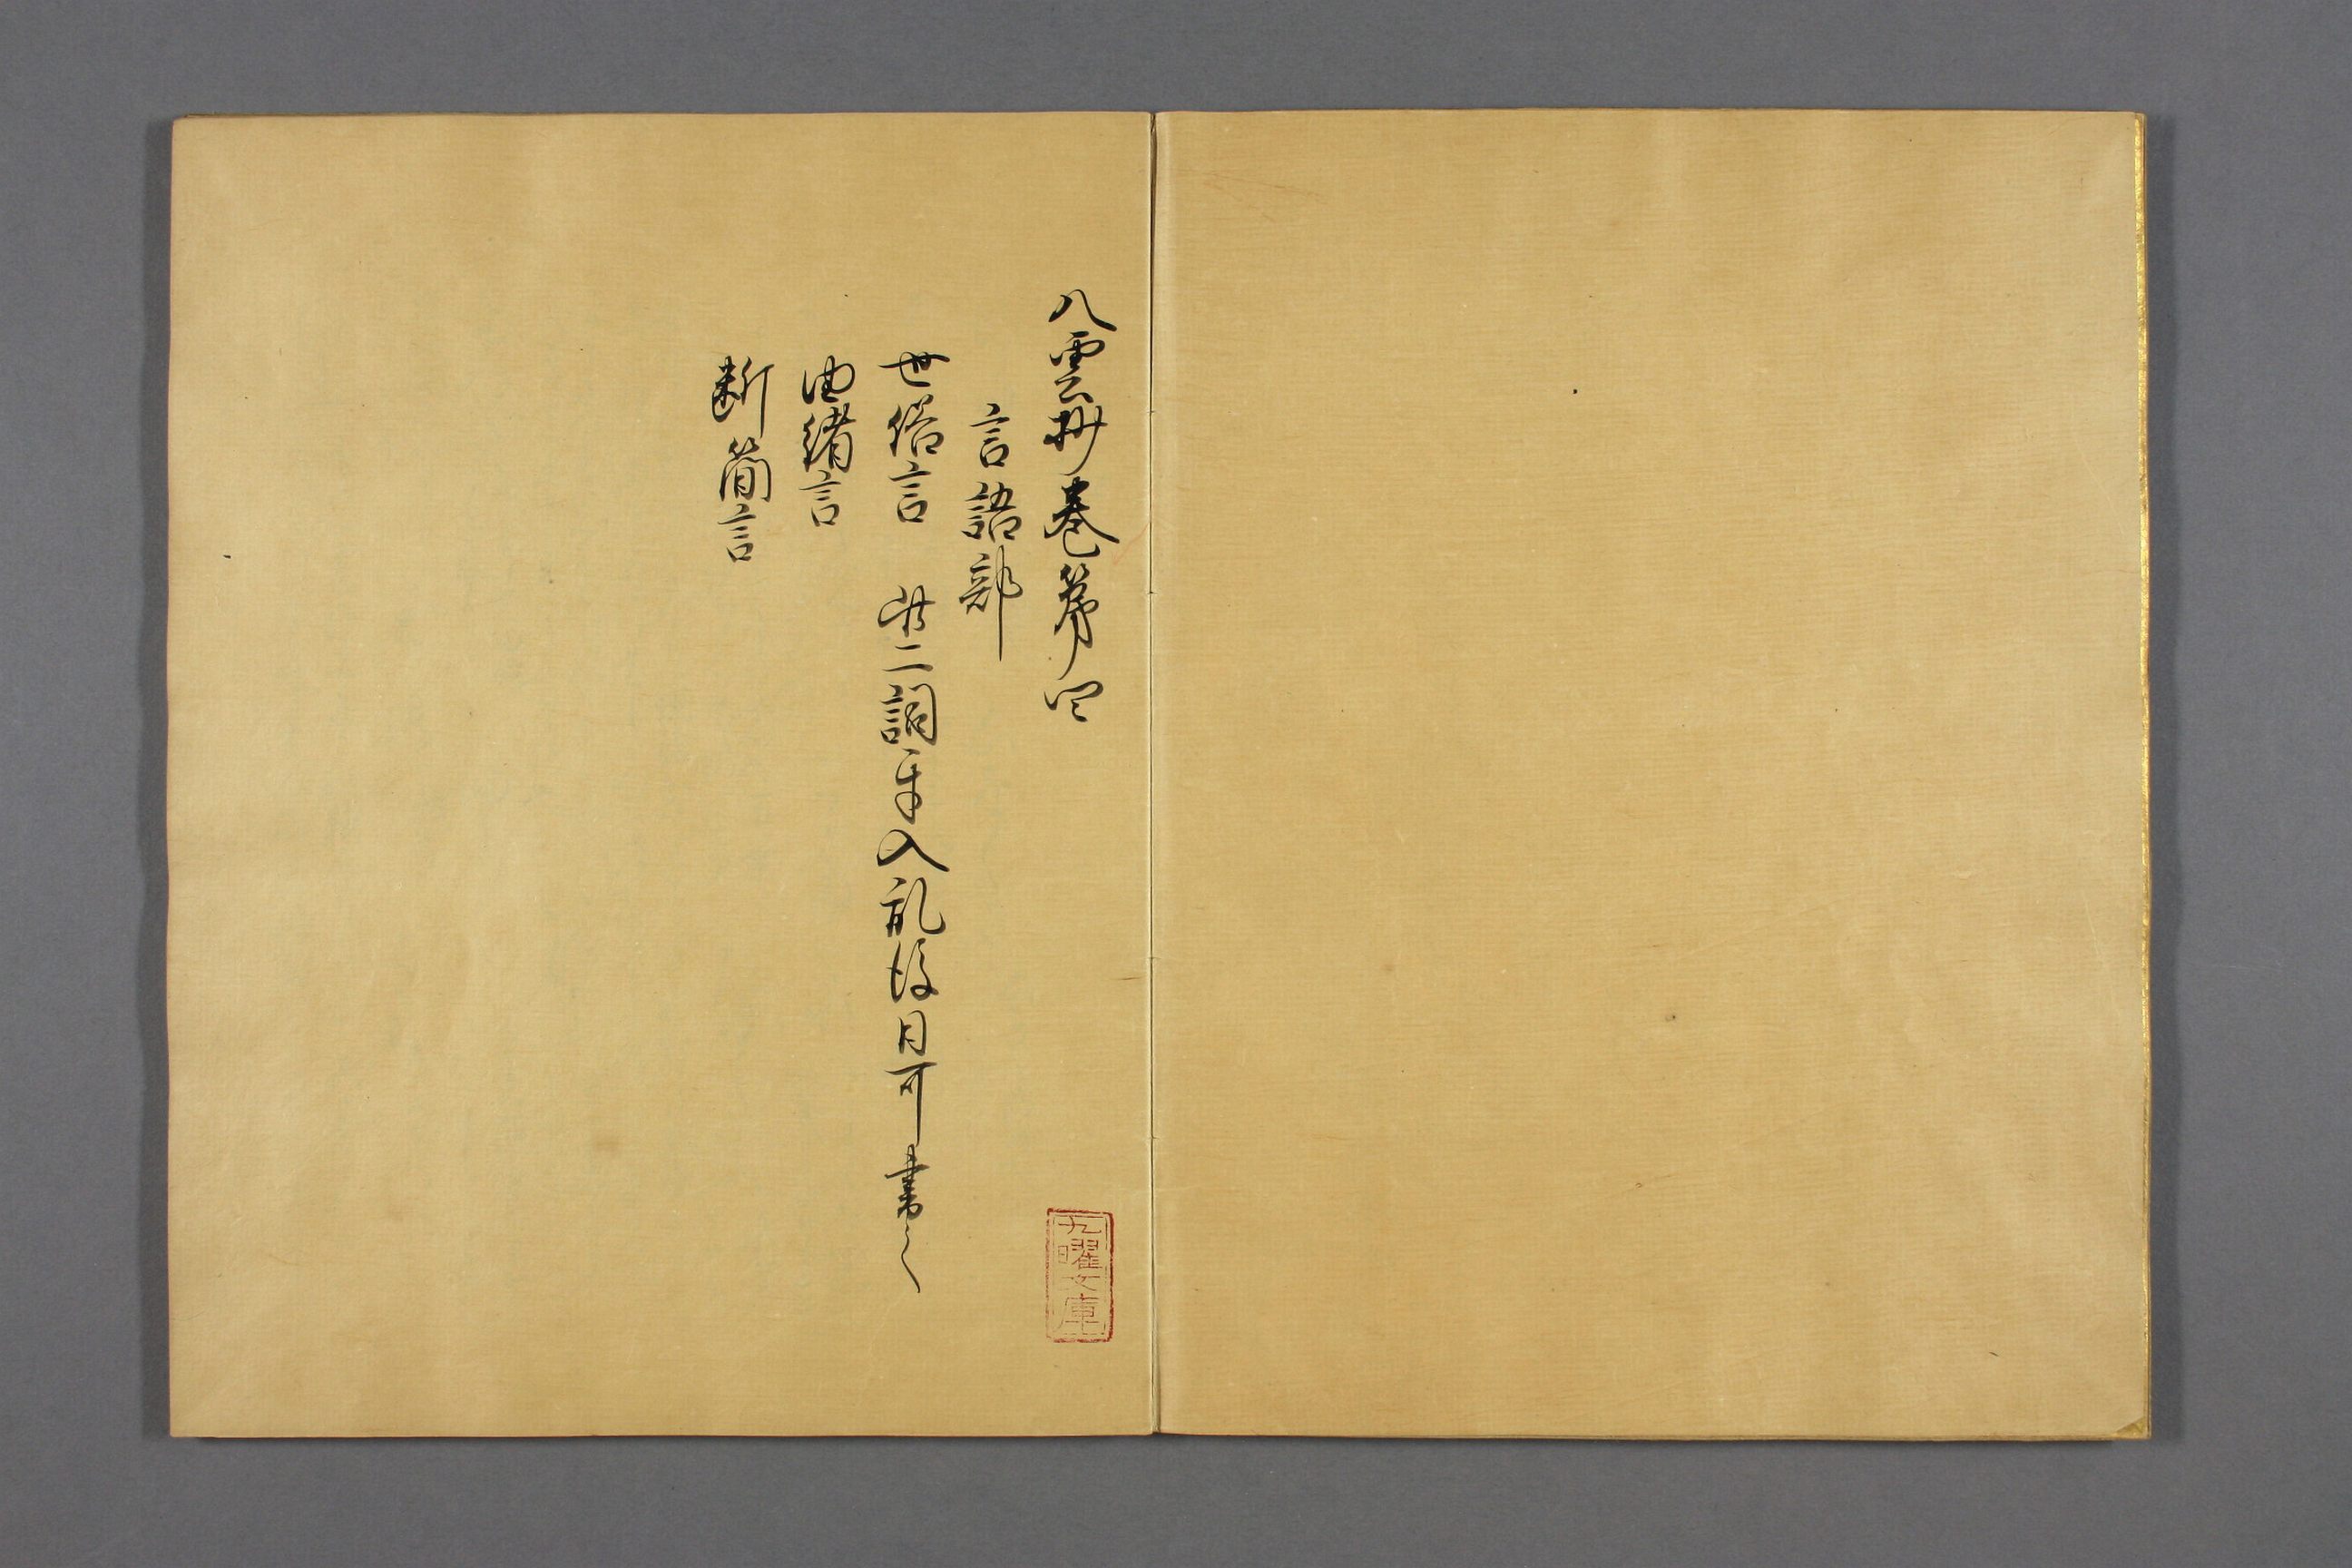 八雲抄巻第四
言語部
世俗言　此二詞等入乱後日可書之
由緒言
料簡言
九曜文庫